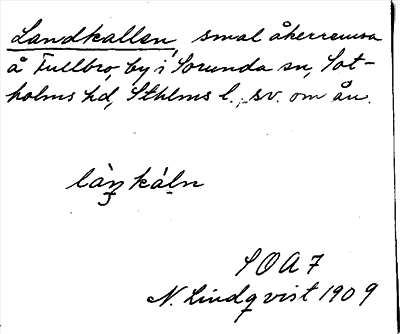 Landkallen, smal åkerremsa
å Fullbro, by i Sorunda sn, Sot-
holms hd, Sthlms l., sv. om ån.
làŋ káḷn
SOA 7
N. Lindqvist 1909